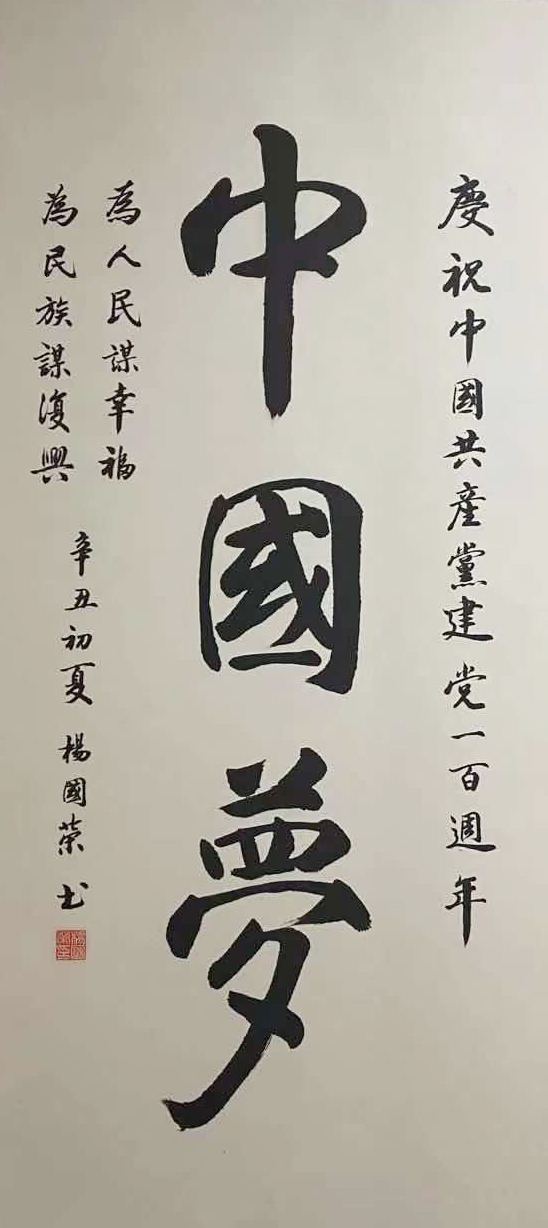 慶祝中國共產黨建党一百週年
中國夢
為人民謀幸福
為民族謀復興
辛丑初夏 楊國榮书